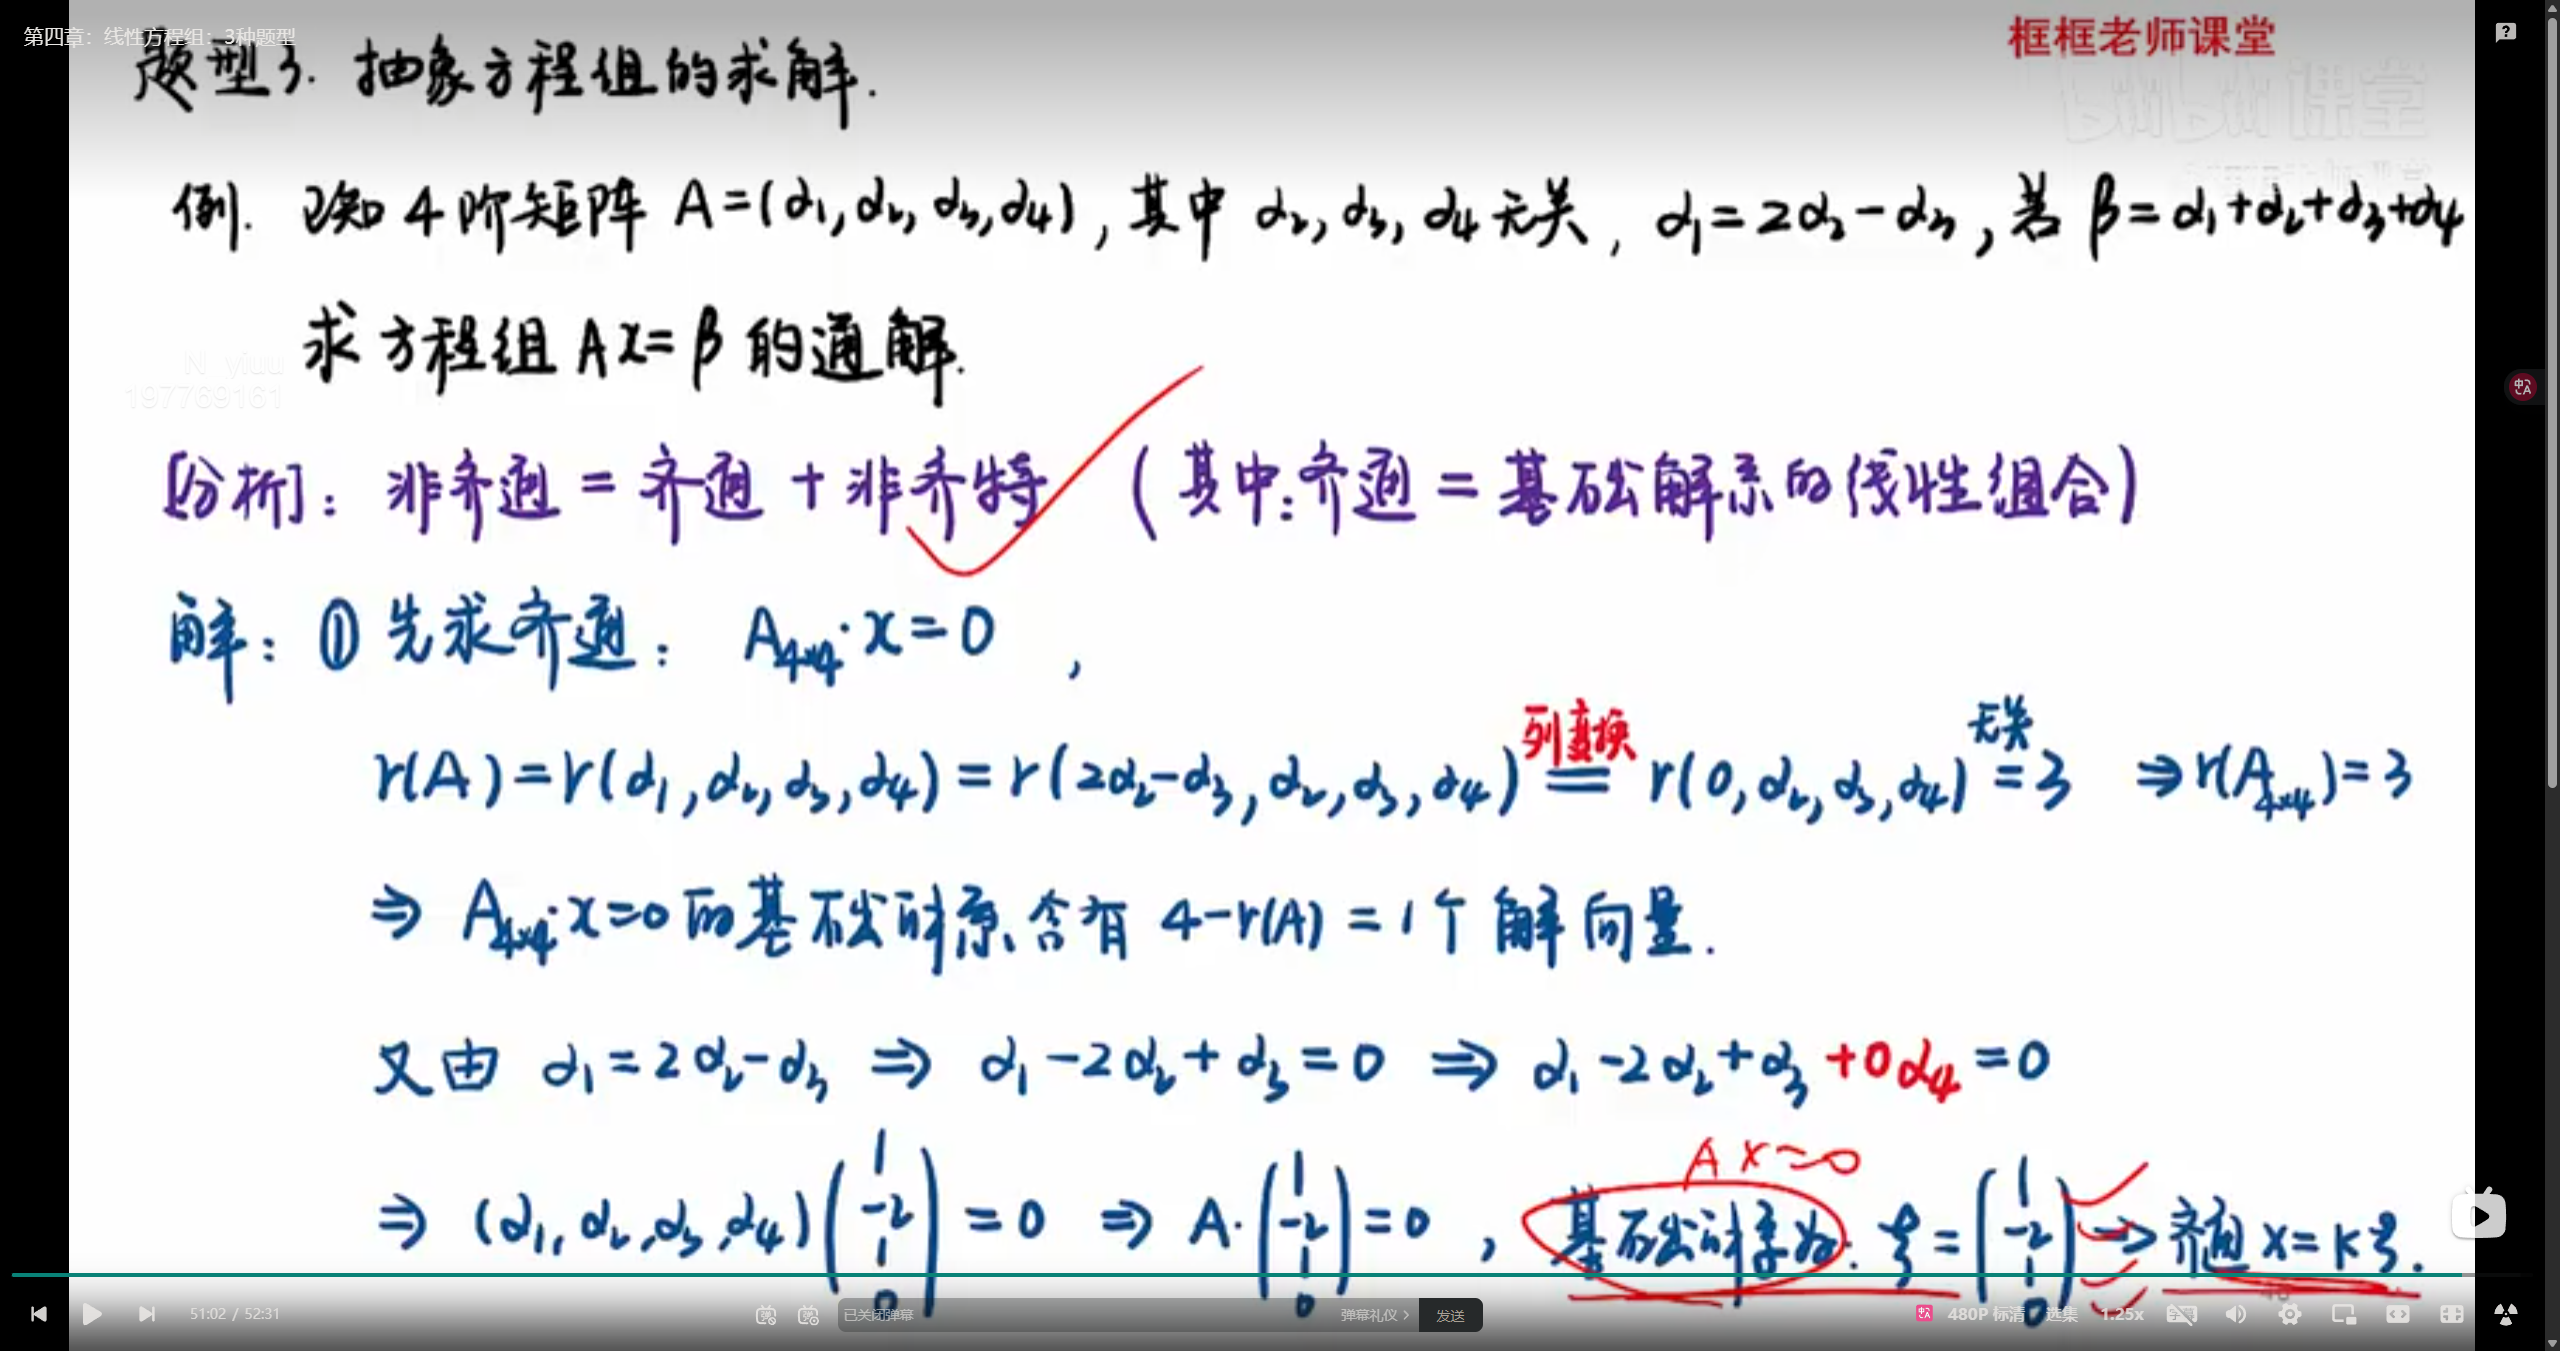 第四章：线性方程组：3种题型
框框老师课堂
题型3. 抽象方程组的求解.
bilibili课堂
例. 已知 4 阶矩阵 A=(α₁,α₂,α₃,α₄), 其中 α₂,α₃,α₄ 无关, α₁=2α₂-α₃, 若 β=α₁+α₂+α₃+α₄
求方程组 Ax=β 的通解.
N_yiuu
197769161
[分析]: 非齐通 = 齐通 + 非齐特 (其中:齐通 = 基础解系的线性组合)
解: ① 先求齐通: A₄ₓ₄·x=0 ,
列变换 无关
r(A)=r(α₁,α₂,α₃,α₄)=r(2α₂-α₃,α₂,α₃,α₄) = r(0,α₂,α₃,α₄) = 3 ⇒ r(A₄ₓ₄)=3
⇒ A₄ₓ₄·x=0 的基础解系含有 4-r(A) = 1个 解向量.
又由 α₁=2α₂-α₃ ⇒ α₁-2α₂+α₃=0 ⇒ α₁-2α₂+α₃+0α₄=0
Ax=0
⇒ (α₁,α₂,α₃,α₄)(1 -2 1 0) = 0 ⇒ A·(1 -2 1 0)=0 , 基础解系为: ξ=(1 -2 1 0) ⇒ 齐通 x=kξ.
51:02 / 52:31
已关闭弹幕
弹幕礼仪 >
发送
480P 标清
选集
1.25x